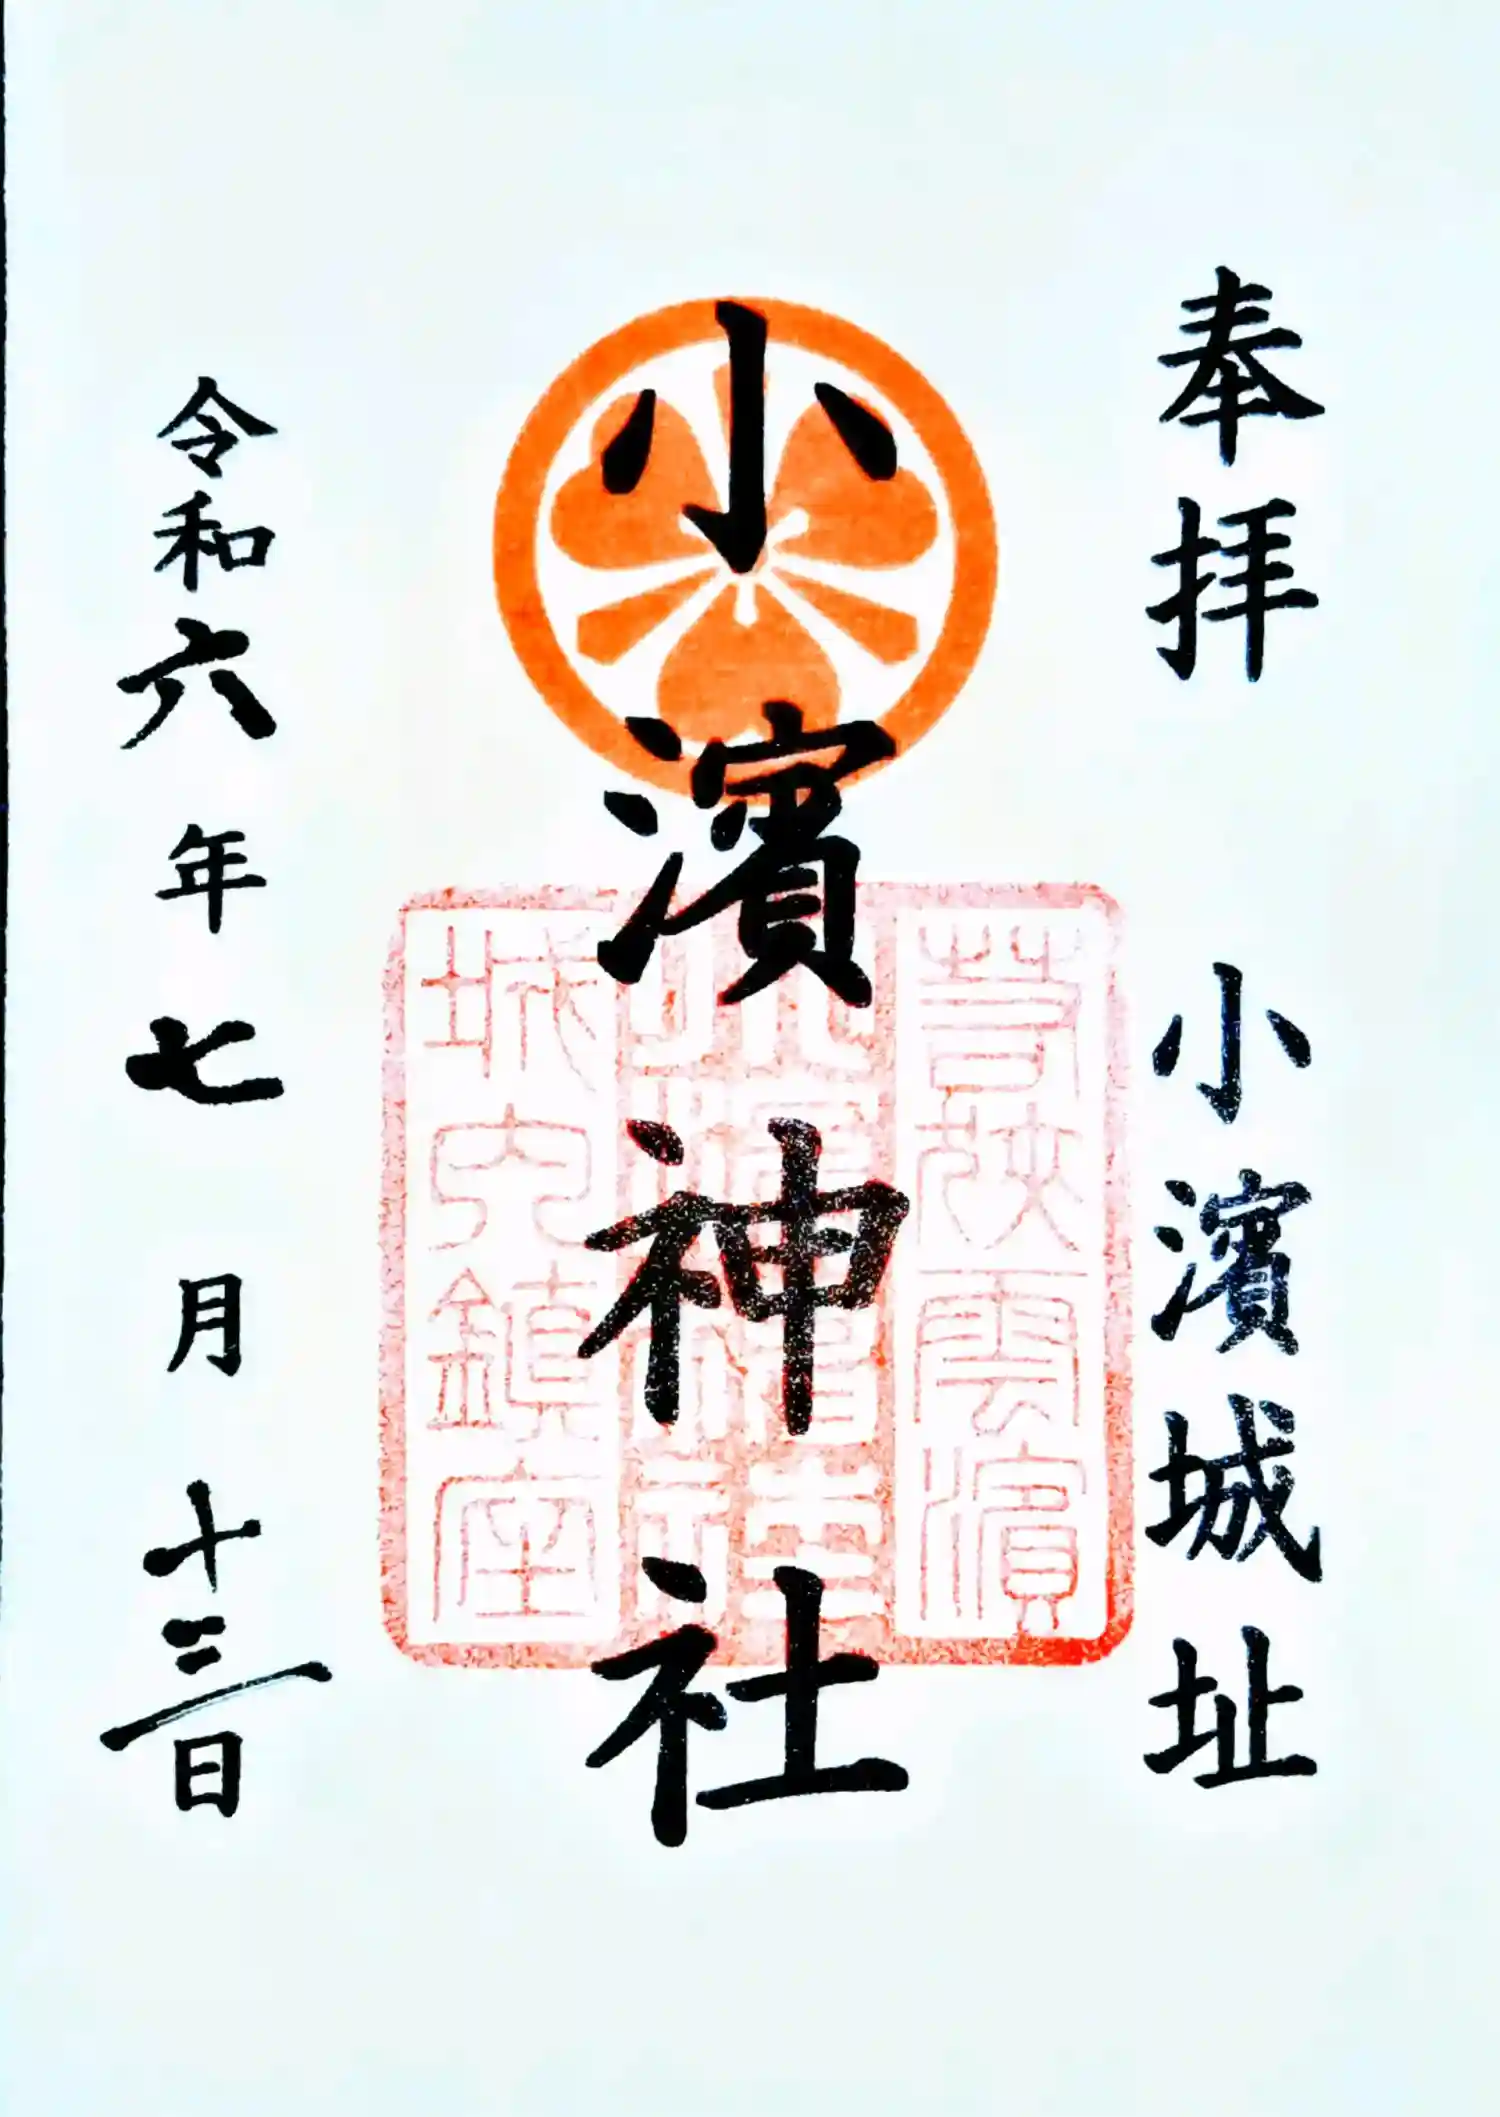 奉拝 小濱城址
小濱神社
令和六年七月十三日
若狭雲濱
城内鎮座